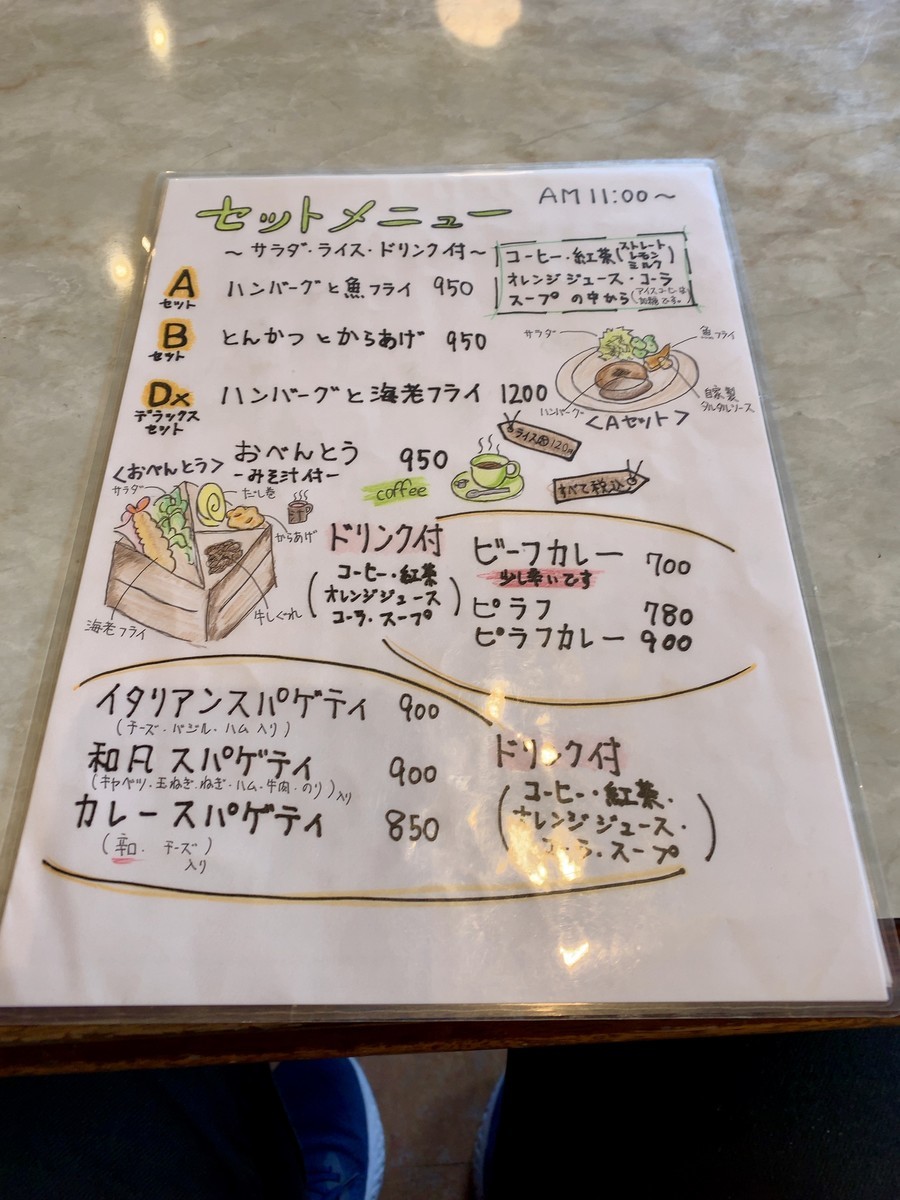 セットメニュー
AM 11:00〜
〜サラダ・ライス・ドリンク付〜
コーヒー・紅茶(ストレート レモン ミルク)
オレンジジュース・コーラ
スープ の中から(アイスコーヒーは 加糖です。)
A セット ハンバーグと魚フライ 950
B セット とんかつとからあげ 950
Dx デラックスセット ハンバーグと海老フライ 1200
サラダ
魚フライ
自家製
タルタルソース
ハンバーグ
<Aセット>
ライス 120円
すべて税込
おべんとう 950
-みそ汁付-
coffee
<おべんとう>
サラダ
だし巻
汁
からあげ
牛しぐれ
海老フライ
ドリンク付
(コーヒー・紅茶
オレンジジュース
コーラ・スープ)
ビーフカレー 700
少し辛いです
ピラフ 780
ピラフカレー 900
イタリアンスパゲティ 900
(チーズ・バジル・ハム 入り)
和風スパゲティ 900
(キャベツ・玉ねぎ・ねぎ・ハム・牛肉・のり)入り
カレースパゲティ 850
(辛口. チーズ)
入り
ドリンク付
(コーヒー・紅茶.
オレンジジュース・
コーラ・スープ)